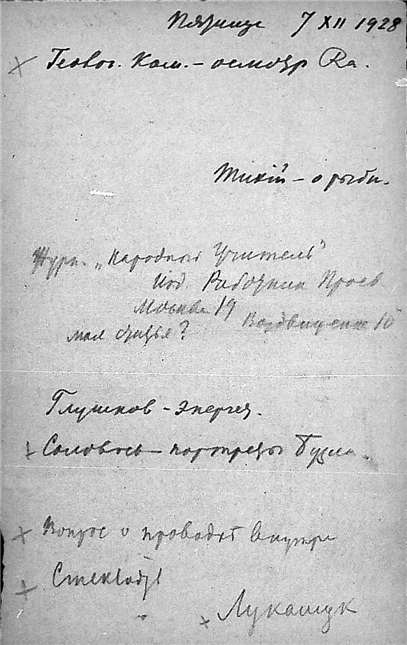 Пятница 7 XII 1928
Геолог. Ком. – осмотр Ra.
Тихий – о рыбн.
Журн. „Народный Учитель"
Изд. Работник Просв
Москва 19 Воздвиженка 10
моя статья?
Глушков – энергет.
Соловьев – портреты
Вопрос о проводах внутри
Лукашук